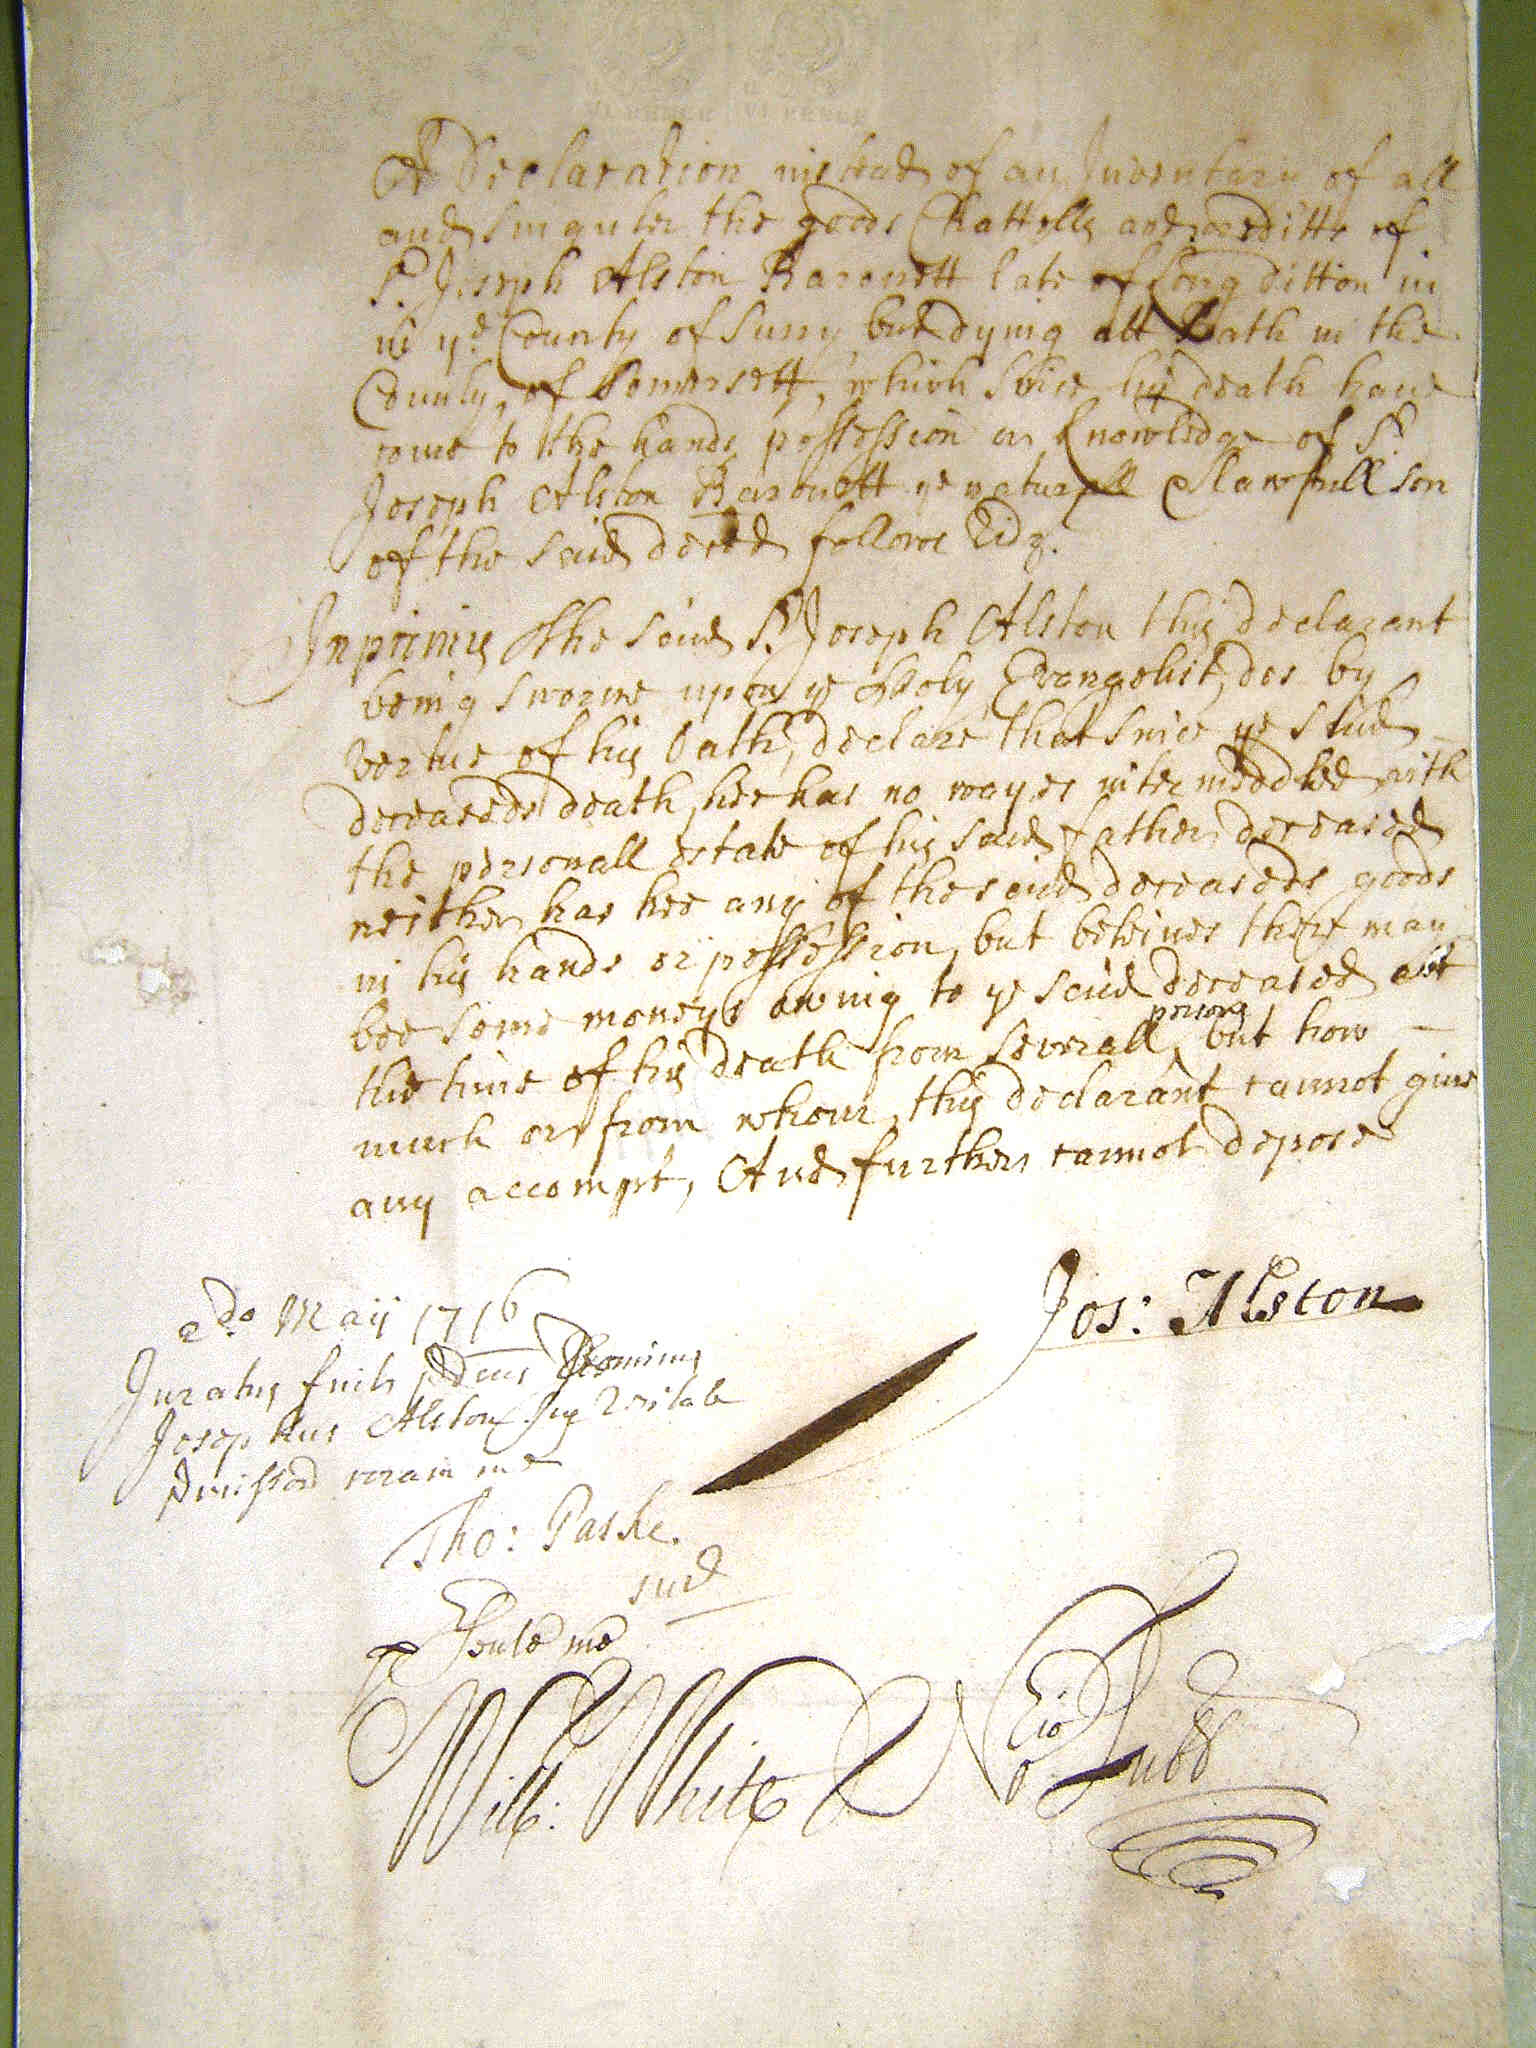 VI PENCE VI PENCE
A Declaration instead of an Inventary of all
and singuler the goods Chattells and creditts of
Sr. Joseph Alston Baronett late of Long ditton in
in ye. County of Surry but dying att Bath in the
County of Somersett, which since his death have
come to the hands possession or knowledge of Sr.
Joseph Alston Baronett ye naturall & lawfull son
of the said deced follows Vidz.
Inprimis The said Sr. Joseph Alston this declarant
being sworne upon ye Holy Evangelist, dos by
vertue of his Oath, declare that since ye said
deceaseds death, hee has no wayes intermeddled with
the personall estate of his said father deceased
neither has hee any of the said deceaseds goods
in his hands or possession, but beleives there may
bee some moneys owing to ye said deceased att
the time of his death from severall persons, but how
much or from whom, this declarant cannot give
any accompt, And further cannot depose
Jos: Alston
2do. May 1716
Juratus fuit Dominus
Josephus Alston sup veritate
coram me
Tho: Paske.
Surr
me
Will: White
Tubb